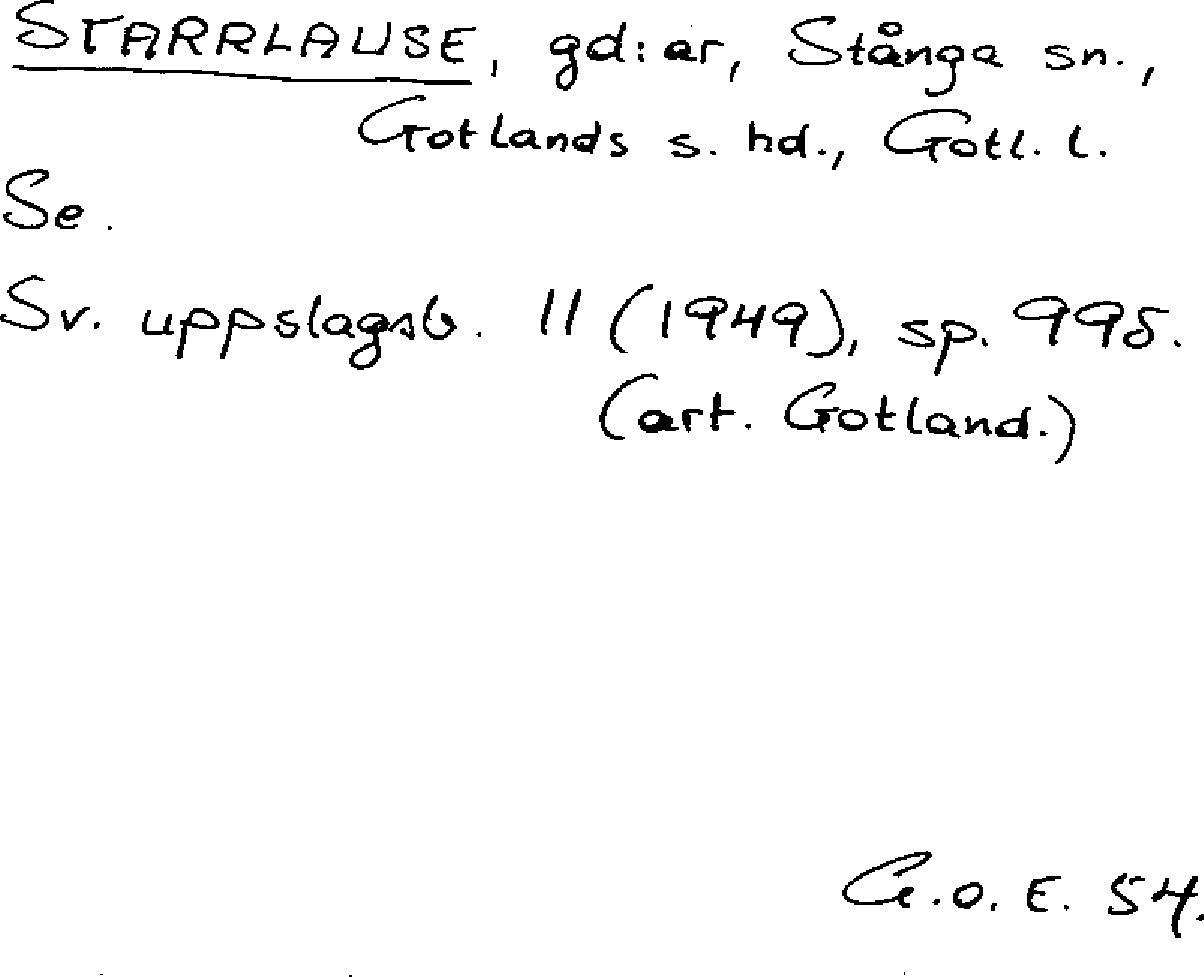 STARRLAUSE, gd:ar, Stånga sn.,
Gotlands s. hd., Gotl. l.
Se.
Sv. uppslagsb. 11 (1949), sp. 995.
(art. Gotland.)
G.O.E. 54.